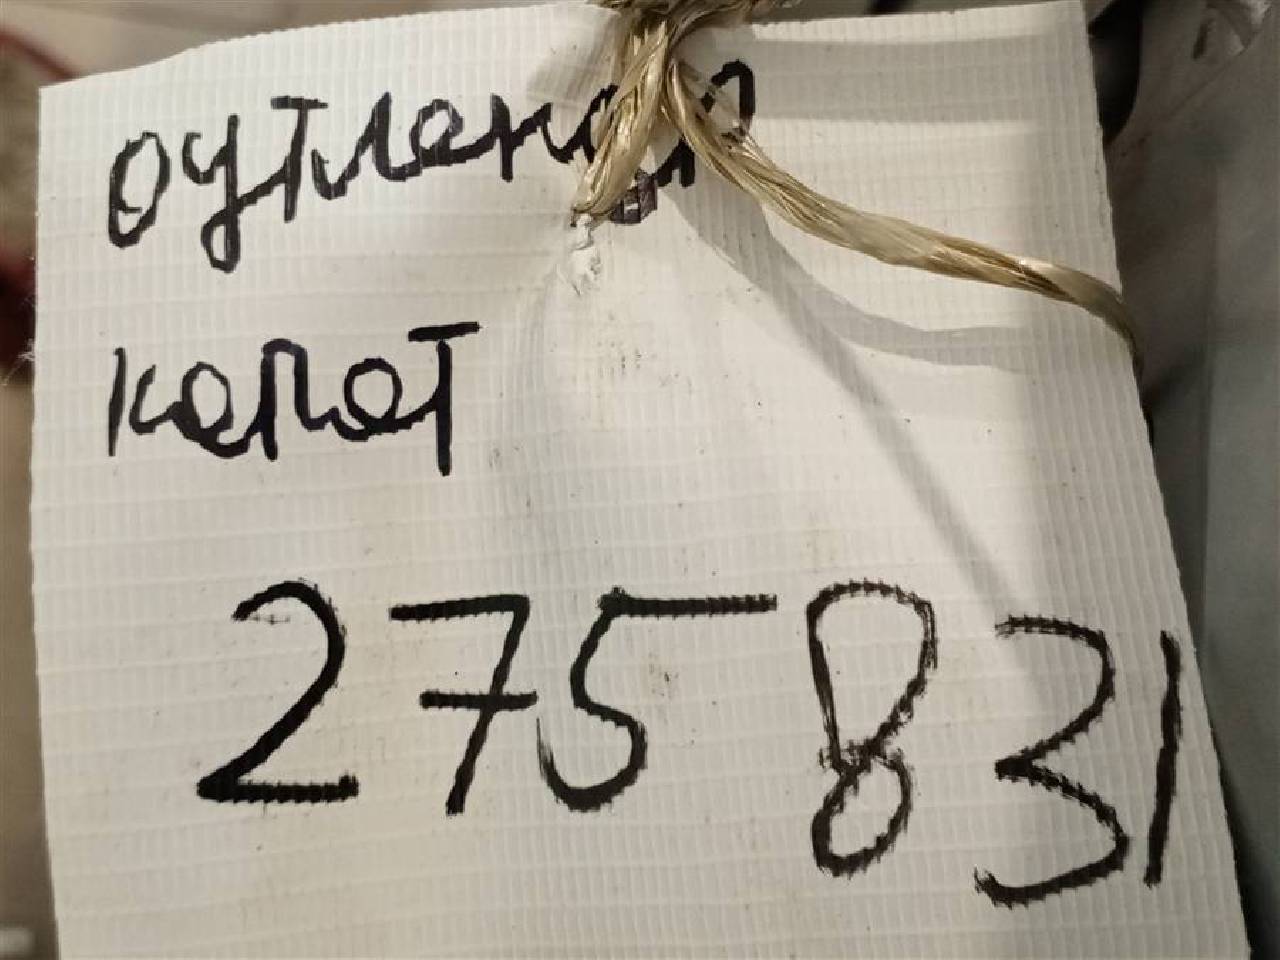 оутлендр
капот
275831